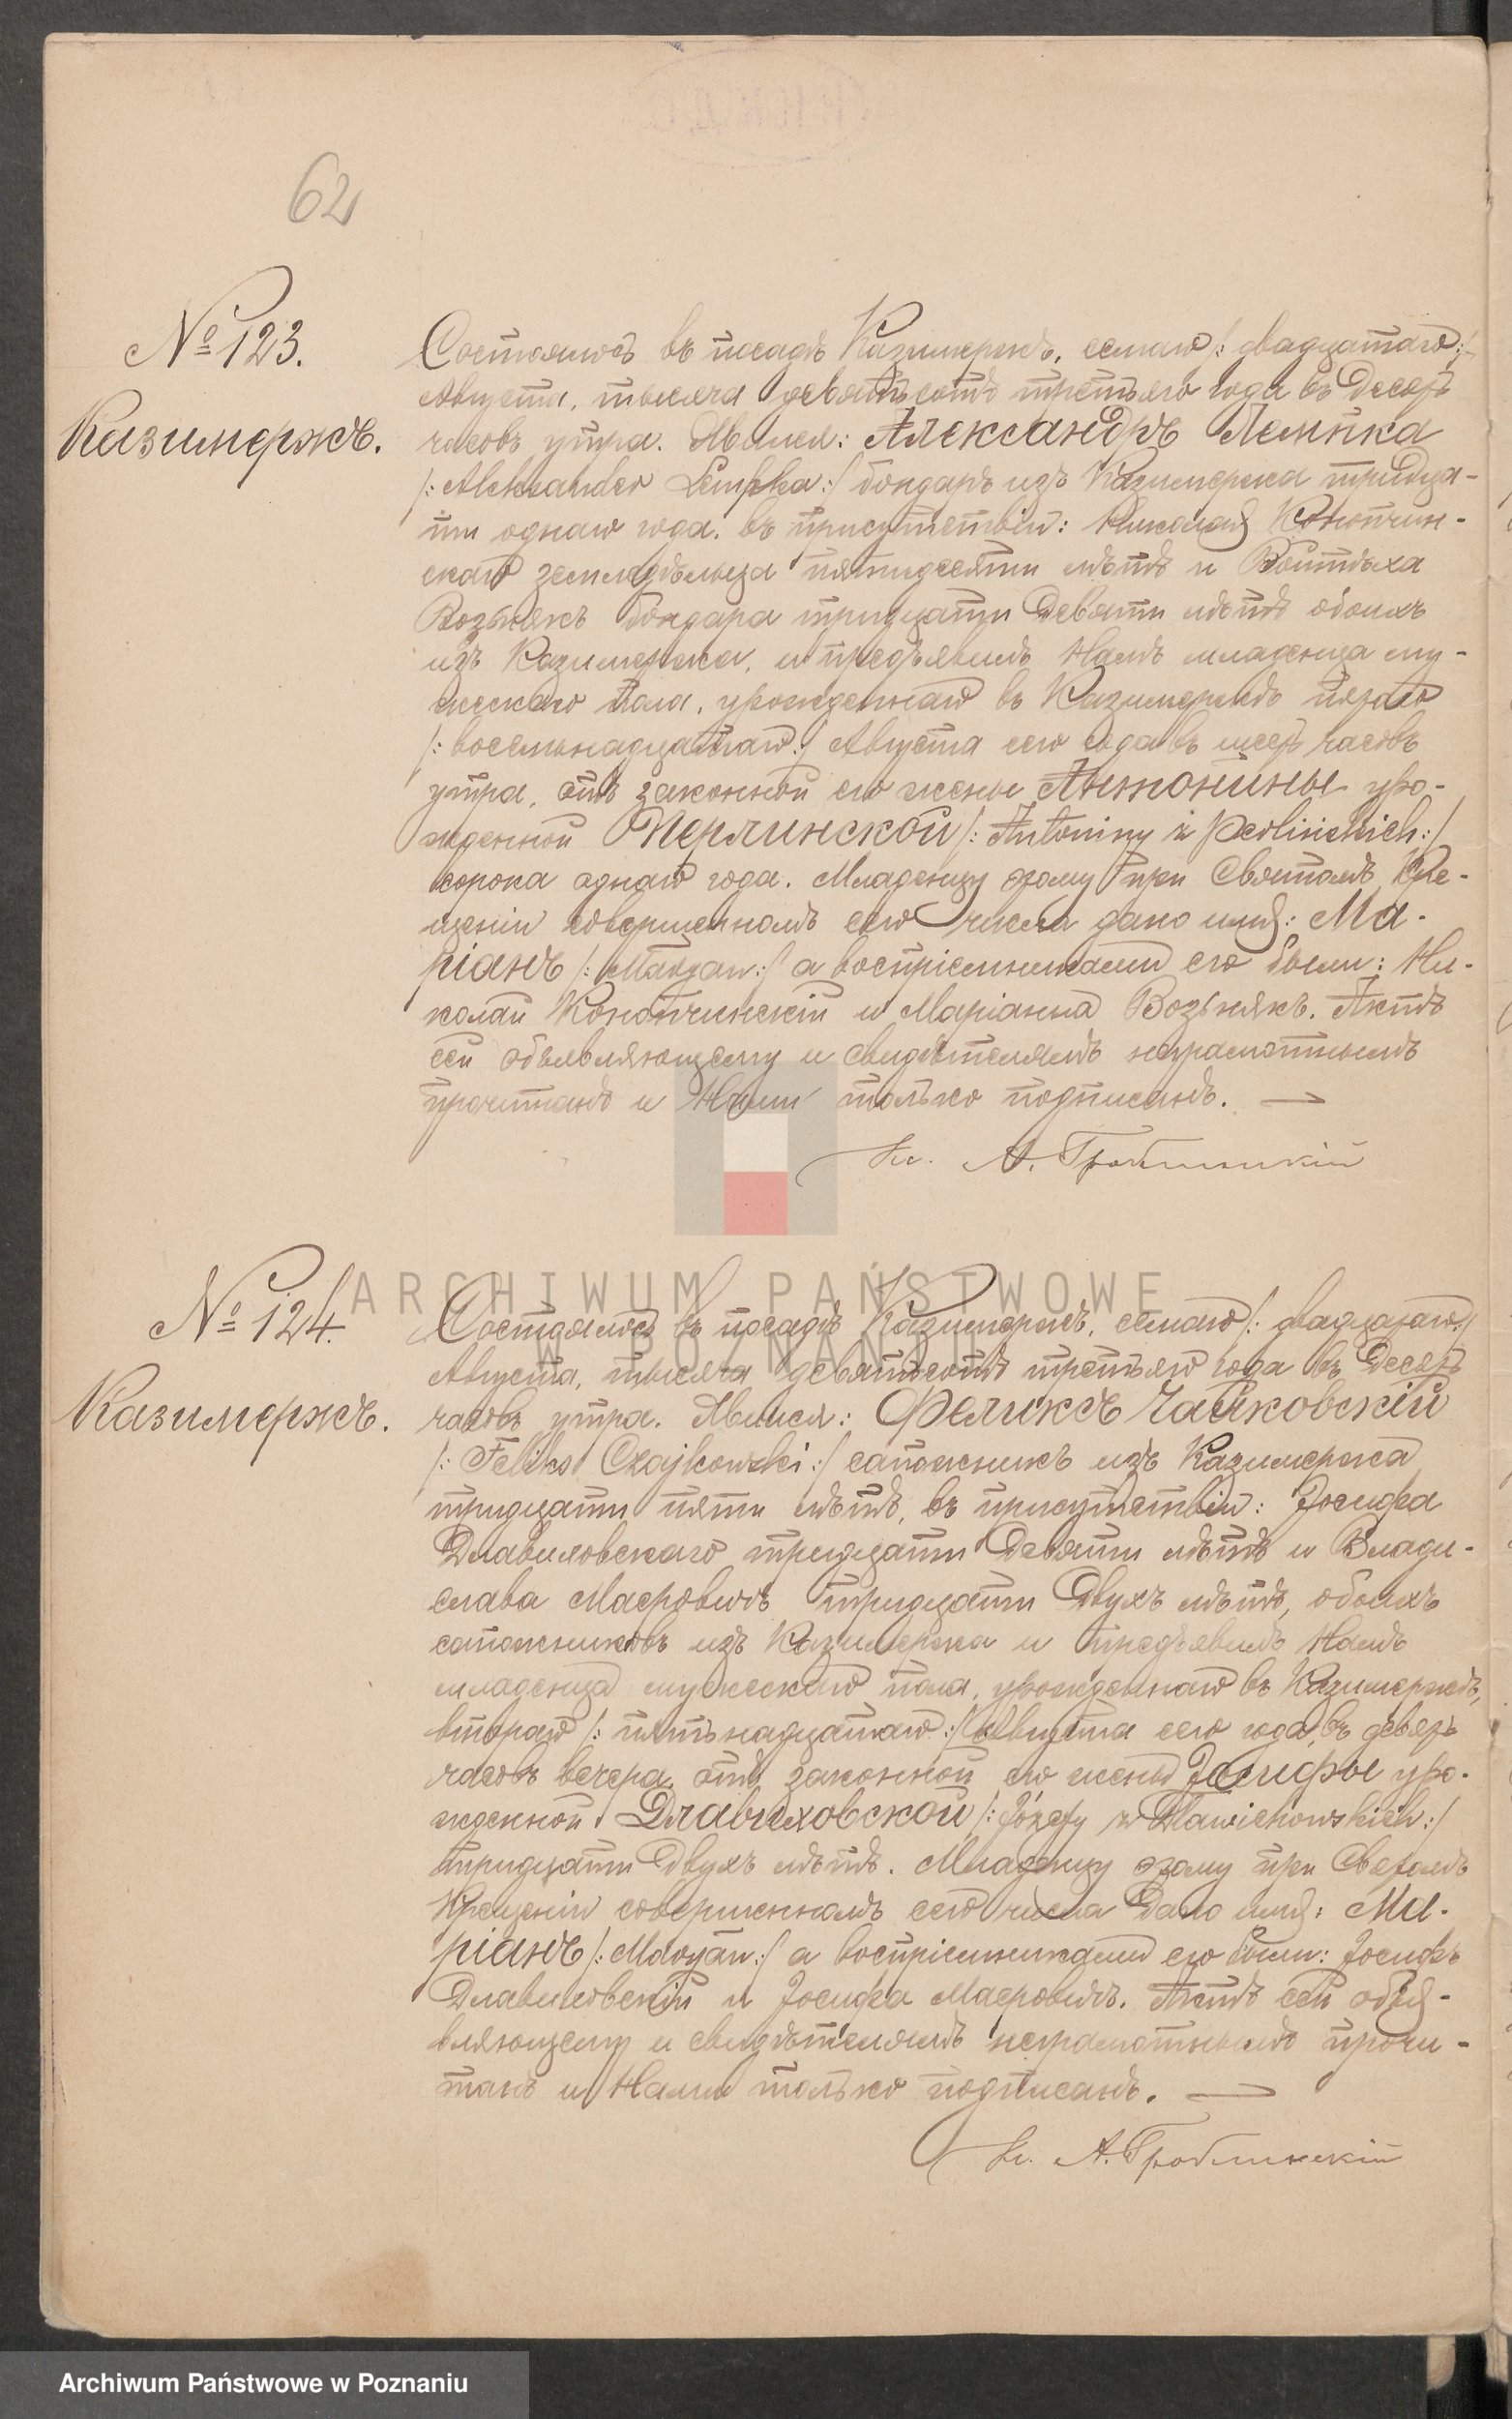 62
№ 123.
Казимержъ.
Состоялось въ посадѣ Казимержѣ, седмаго /: двадцатаго :/
Августа, тысяча девятьсотъ третьяго года въ десять
часовъ утра. Явился: Александръ Лемпка
/: Aleksander Lempka :/ бондаръ изъ Казимержа тридца-
ти однаго года, въ присутствіи: Николая Конопчин-
скаго земледѣльца пятидесяти лѣтъ и Войтѣха
Возьнякъ бондара тридцати девяти лѣтъ обоихъ
изъ Казимержа, и предъявилъ Намъ младенца му-
жескаго пола, урожденнаго въ Казимержѣ пятаго
/: восемьнадцатаго :/ Августа сего года въ шесть часовъ
утра, отъ законной его жены Антонины уро-
жденной Перлинской /: Antoniny z Perlińskich :/
сорока однаго года. Младенцу этому при Святомъ Кре-
щеніи совершенномъ сего числа дано имя: Ма-
ріанъ /: Maryan :/ а воспріемниками его были: Ни-
колай Конопчинскій и Маріанна Возьнякъ. Актъ
сей объявляющему и свидѣтелямъ неграмотнымъ
прочитанъ и Нами только подписанъ. —
Кс. А. Гроблинскій
№ 124.
Казимержъ.
Состоялось въ посадѣ Казимержѣ, седмаго /: двадцатаго :/
Августа, тысяча девятьсотъ третьяго года въ десять
часовъ утра. Явился: Феликсъ Чайковскій
/: Feliks Czajkowski :/ сапожникъ изъ Казимержа
тридцати пяти лѣтъ, въ присутствіи: Іосифа
Длавиховскаго тридцати девяти лѣтъ и Влади-
слава тридцати двухъ лѣтъ, обоихъ
сапожниковъ изъ Казимержа и предъявилъ Намъ
младенца мужескаго пола, урожденнаго въ Казимержѣ,
втораго /: пятьнадцатаго :/ Августа сего года, въ девять
часовъ вечера, отъ законной его жены Іосифы уро-
жденной Длавиховской /: Józefy z Dławichowskich :/
тридцати двухъ лѣтъ. Младенцу этому при Святомъ
Крещеніи совершенномъ сего числа дано имя: Ма-
ріанъ /: Maryan :/ а воспріемниками его были: Іосифъ
Длавиховскій и Іосифа Актъ сей объя-
вляющему и свидѣтелямъ неграмотнымъ прочи-
танъ и Нами только подписанъ. —
Кс. А. Гроблинскій
ARCHIWUM PAŃSTWOWE
W POZNANIU
Archiwum Państwowe w Poznaniu